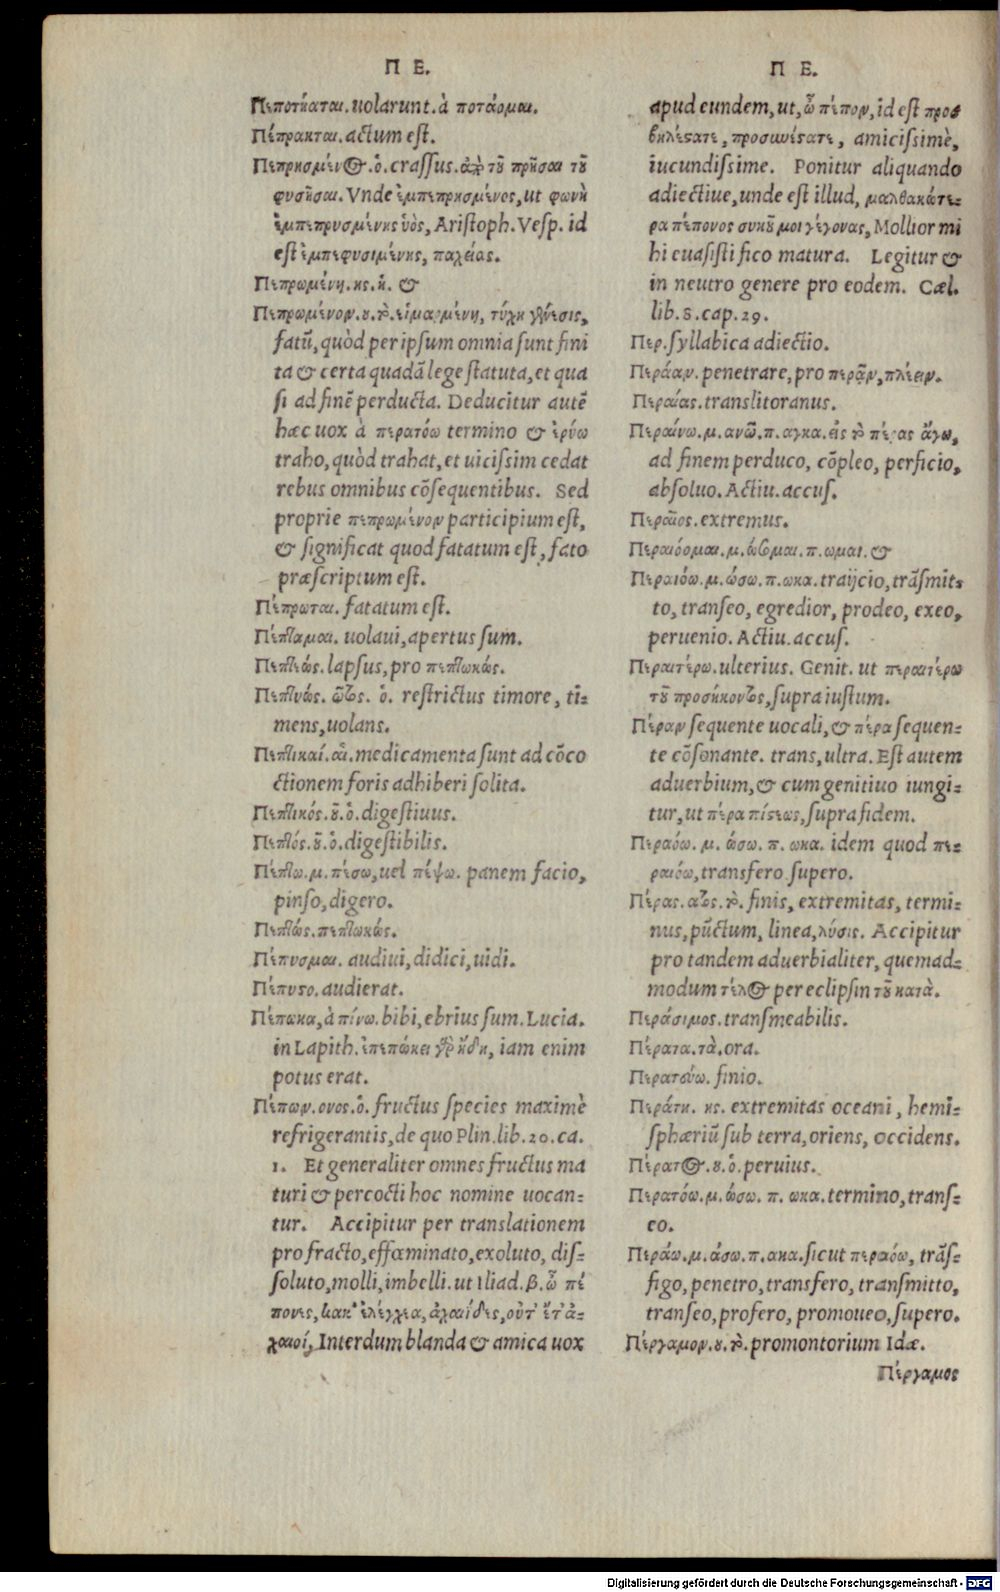 Π Ε.
Πεποτήαται. uolarunt. à ποτάομαι.
Πέπρακται. actum est.
Πεπρησμένος. ὁ. crassus. ἀπὸ τοῦ πρῆσαι τοῦ
φυσῆσαι. Vnde ἐμπεπρησμένος, ut φωνὴ
ἐμπεπρυσμένης ὑὸς, Aristoph. Vesp. id
est ἐμπεφυσιμένης, παχείας.
Πεπρωμένη. ης. ἡ. &
Πεπρωμένον. ου. τὸ. εἱμαρμένη, τύχη γένεσις,
fatũ, quòd per ipsum omnia sunt fini
ta & certa quadã lege statuta, et qua
si ad finẽ perducta. Deducitur autẽ
hæc uox à περατόω termino & ἐρύω
traho, quòd trahat, et uicissim cedat
rebus omnibus cõsequentibus. Sed
proprie πεπρωμένον participium est,
& significat quod fatatum est, fato
præscriptum est.
Πέπρωται. fatatum est.
Πέπταμαι. uolaui, apertus sum.
Πεπτεώς. lapsus, pro πεπτωκώς.
Πεπτνώς. ῶτος. ὁ. restrictus timore, ti-
mens, uolans.
Πεπτικαί. αἱ. medicamenta sunt ad cõco
ctionem foris adhiberi solita.
Πεπτικός. οῦ. ὁ. digestiuus.
Πεπτός. οῦ. ὁ. digestibilis.
Πέπτω. μ. πέσω, uel πέψω. panem facio,
pinso, digero.
Πεπτώς. πεπτωκώς.
Πέπυσμαι. audiui, didici, uidi.
Πέπυστο. audierat.
Πέπωκα, à πίνω. bibi, ebrius sum. Lucia.
in Lapith. ἐπεπώκει γὰρ ἤδη, iam enim
potus erat.
Πέπων. ονος. ὁ. fructus species maximè
refrigerantis, de quo Plin. lib. 20. ca.
1. Et generaliter omnes fructus ma
turi & percocti hoc nomine uocan-
tur. Accipitur per translationem
pro fracto, effœminato, exoluto, dis-
soluto, molli, imbelli. ut Iliad. β. ὦ πέ
πονες, κακ' ἐλέγχεα, ἀχαιίδες, οὐτ' ἔτ' ἀ-
χαιοί, Interdum blanda & amica uox
Π Ε.
apud eundem, ut, ὦ πέπον, id est προσ
βηλέστατε, προσηνέστατε, amicissimè,
iucundissime. Ponitur aliquando
adiectiue, unde est illud, μαλθακώτε-
ρα πέπονος συκοῦ μοι γέγονας, Mollior mi
hi euasisti fico matura. Legitur &
in neutro genere pro eodem. Cæl.
lib. 8. cap. 29.
Περ. syllabica adiectio.
Περάαν. penetrare, pro περᾷν, πλέειν.
Περαίας. translitoranus.
Περαίνω. μ. ανῶ. π. αγκα. εἰς τὸ πέρας ἄγω,
ad finem perduco, cõpleo, perficio,
absoluo. Actiu. accus.
Περαῖος. extremus.
Περαιόομαι. μ. ώσομαι. π. ωμαι. &
Περαιόω. μ. ώσω. π. ωκα. traijcio, trãsmit-
to, transeo, egredior, prodeo, exeo,
peruenio. Actiu. accus.
Περαιτέρω. ulterius. Genit. ut περαιτέρω
τοῦ προσήκοντος, supra iustum.
Πέραν sequente uocali, & πέρα sequen-
te cõsonante. trans, ultra. Est autem
aduerbium, & cum genitiuo iungi-
tur, ut πέρα πίστεως, supra fidem.
Περαόω. μ. ώσω. π. ωκα. idem quod πε-
ραιόω, transfero supero.
Πέρας. ατος. τὸ. finis, extremitas, termi-
nus, pũctum, linea, λύσις. Accipitur
pro tandem aduerbialiter, quemad-
modum τέλος per eclipsin τοῦ κατὰ.
Περάσιμος. transmeabilis.
Πέρατα. τὰ. ora.
Περατεύω. finio.
Περάτη. ης. extremitas oceani, hemi-
sphæriũ sub terra, oriens, occidens.
Πέρατος. ου. ὁ. peruius.
Περατόω. μ. ώσω. π. ωκα. termino, trans-
eo.
Περάω. μ. άσω. π. ακα. sicut περαιόω, trãs-
figo, penetro, transfero, transmitto,
transeo, profero, promoueo, supero.
Πέργαμον. ου. τὸ. promontorium Idæ.
Πέργαμος
Digitalisierung gefördert durch die Deutsche Forschungsgemeinschaft - DFG